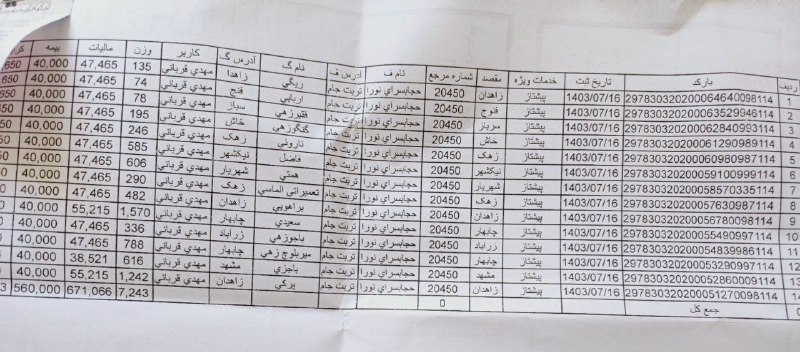 ردیف بارکد تاریخ ثبت خدمات ویژه مقصد شماره مرجع نام ف آدرس ف نام گ آدرس گ کاربر وزن مالیات بیمه
1 297830320200064640098114 1403/07/16 پیشتاز زاهدان 20450 حجابسراي نورا تربت جام ریگي زاهدا مهدي قرباني 135 47,465 40,000 650
2 297830320200063529946114 1403/07/16 پیشتاز فنوج 20450 حجابسراي نورا تربت جام اربابي فنج مهدي قرباني 74 47,465 40,000 650
3 297830320200062840993114 1403/07/16 پیشتاز سرباز 20450 حجابسراي نورا تربت جام قنبرزهي سباز مهدي قرباني 78 47,465 40,000 650
4 297830320200061290989114 1403/07/16 پیشتاز خاش 20450 حجابسراي نورا تربت جام گنگوزهي خاش مهدي قرباني 195 47,465 40,000
5 297830320200060980987114 1403/07/16 پیشتاز زهک 20450 حجابسراي نورا تربت جام نارويي زهک مهدي قرباني 246 47,465 40,000
6 297830320200059100999114 1403/07/16 پیشتاز نیکشهر 20450 حجابسراي نورا تربت جام فاضل نیکشهر مهدي قرباني 585 47,465 40,000
7 297830320200058570335114 1403/07/16 پیشتاز شهریار 20450 حجابسراي نورا تربت جام همتي شهریار مهدي قرباني 606 47,465 40,000
8 297830320200057630987114 1403/07/16 پیشتاز زهک 20450 حجابسراي نورا تربت جام تعمیراتي الماسي زهک مهدي قرباني 290 47,465 40,000
9 297830320200056780098114 1403/07/16 پیشتاز زاهدان 20450 حجابسراي نورا تربت جام براهويي زاهدان مهدي قرباني 482 47,465 40,000
10 297830320200055490997114 1403/07/16 پیشتاز چابهار 20450 حجابسراي نورا تربت جام سعیدي چابهار مهدي قرباني 1,570 55,215 40,000
11 297830320200054839986114 1403/07/16 پیشتاز زراباد 20450 حجابسراي نورا تربت جام باجوزهي زراباد مهدي قرباني 336 47,465 40,000
12 297830320200053290997114 1403/07/16 پیشتاز چابهار 20450 حجابسراي نورا تربت جام میربلوچ زهي چابهار مهدي قرباني 788 47,465 40,000
13 297830320200052860009114 1403/07/16 پیشتاز مشهد 20450 حجابسراي نورا تربت جام باجزي مشهد مهدي قرباني 616 38,521 40,000
14 297830320200051270098114 1403/07/16 پیشتاز زاهدان 20450 حجابسراي نورا تربت جام پرکي زاهدان مهدي قرباني 1,242 55,215 40,000
جمع کل 0 7,243 671,066 560,000